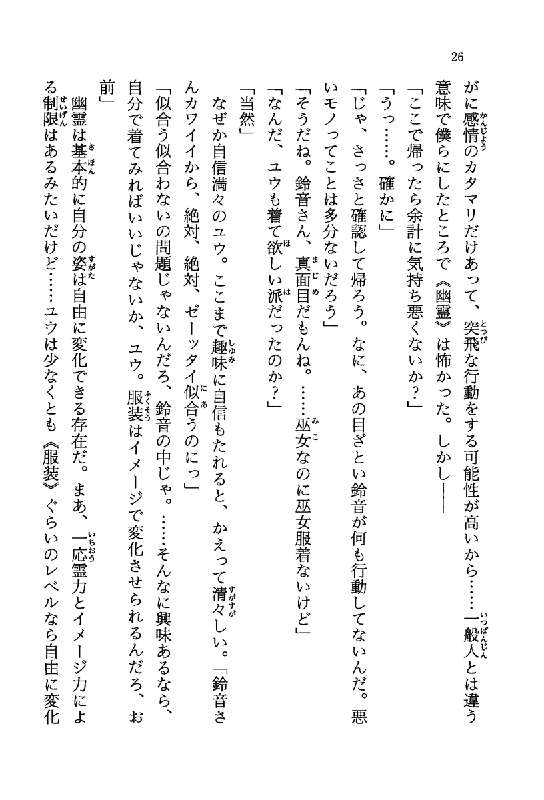 26
がに感情のカタマリだけあって、突飛な行動をする可能性が高いから……一般人とは違う
意味で僕らにしたところで《幽霊》は怖かった。しかし――
「ここで帰ったら余計に気持ち悪くないか？」
「うっ……。確かに」
「じゃ、さっさと確認して帰ろう。なに、あの目ざとい鈴音が何も行動してないんだ。悪
いモノってことは多分ないだろう」
「そうだね。鈴音さん、真面目だもんね。……巫女なのに巫女服着ないけど」
「なんだ、ユウも着て欲しい派だったのか？」
「当然」
なぜか自信満々のユウ。ここまで趣味に自信もたれると、かえって清々しい。「鈴音さ
んカワイイから、絶対、絶対、ゼーッタイ似合うのにっ」
「似合う似合わないの問題じゃないんだろ、鈴音の中じゃ。……そんなに興味あるなら、
自分で着てみればいいじゃないか、ユウ。服装はイメージで変化させられるんだろ、お
前」
幽霊は基本的に自分の姿は自由に変化できる存在だ。まあ、一応霊力とイメージ力によ
る制限はあるみたいだけど……ユウは少なくとも《服装》ぐらいのレベルなら自由に変化